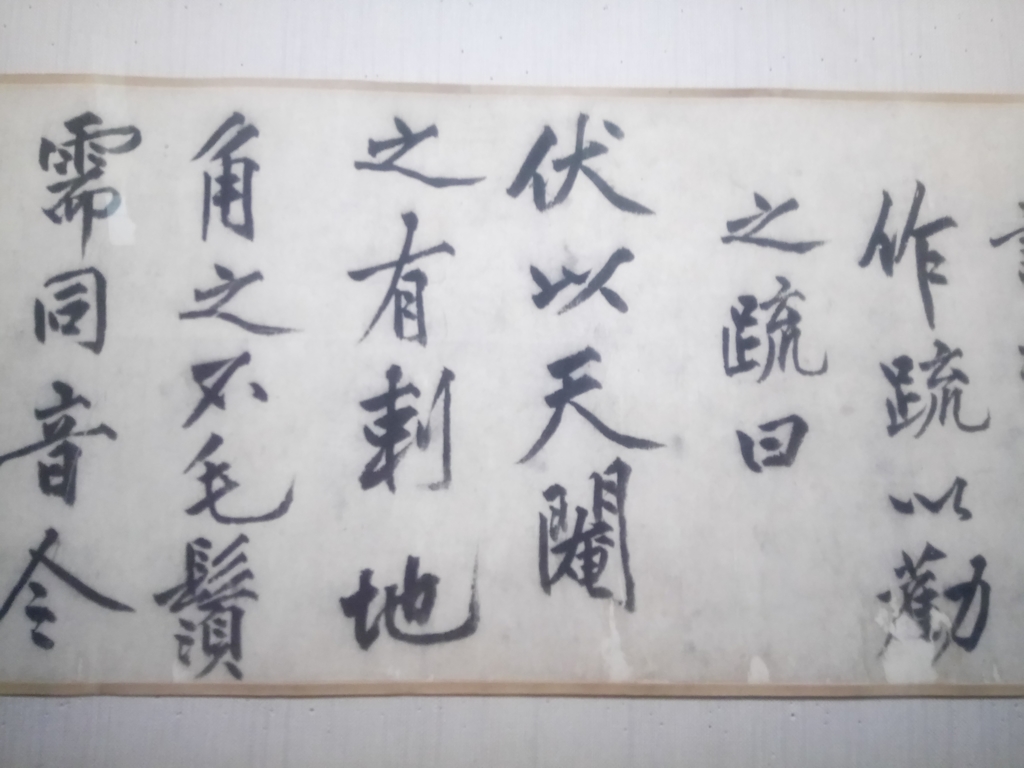 作疏以勸
之疏曰
伏以天閹
之有刺地
角之不毛鬚
需同音今